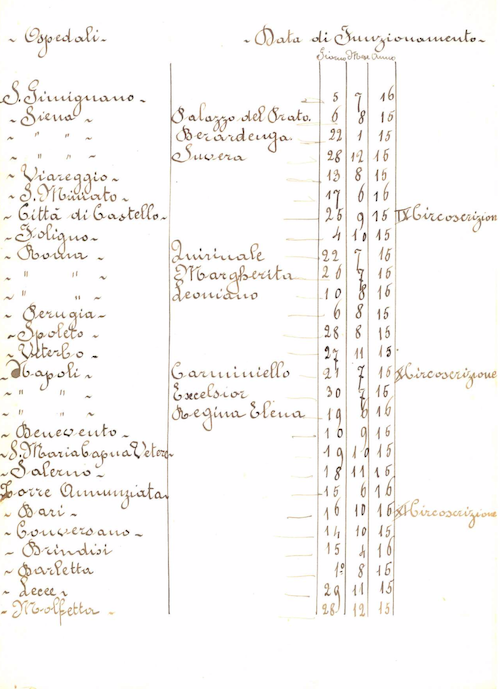 - Ospedali - - Data di Funzionamento -
Giorno Mese Anno
S. Gimignano - 5 7 16
- Siena - Palazzo del Prato. 6 8 15
- " " - Berardenga - 22 1 15
- " " - Suvera 28 12 15
- Viareggio - 13 8 15
- S. Miniato - 17 6 16
- Città di Castello - 25 9 15 IX Circoscrizion
- Foligno - 4 10 15
- Roma - Quirinale 22 7 15
- " " - Margherita 26 7 15
- " " - Leoniano 10 8 15
- Perugia - 6 8 15
- Spoleto - 28 8 15
- Viterbo - 27 11 15
- Napoli - Carminiello 21 7 15 X Circoscrizione
- " " - Excelsior 30 7 15
- " " - Regina Elena 19 6 16
- Benevento - 10 9 16
- S. Maria Capua Vetere - 19 10 15
- Salerno - 18 11 15
Torre Annunziata - 15 6 16
- Bari - 16 10 15 XI Circoscrizione
- Conversano - 14 10 15
- Brindisi 15 4 16
- Barletta 1º 8 15
- Lecce - 29 11 15
- Molfetta - 28 12 15